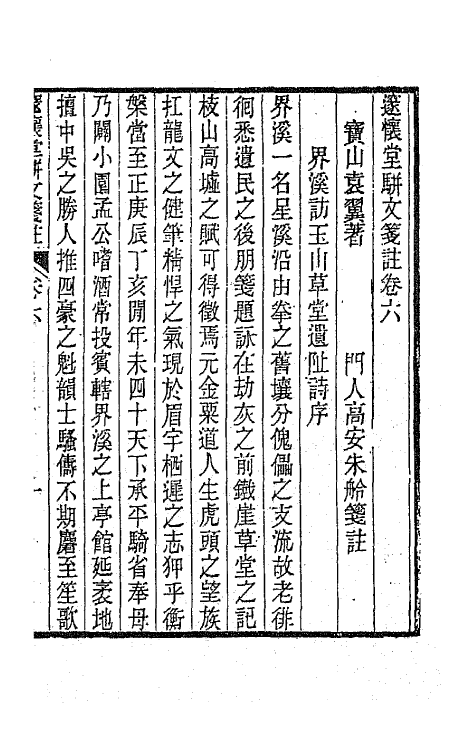 邃懷堂駢文箋註卷六
寶山袁翼著　門人高安朱舲箋註
界溪訪玉山草堂遺阯詩序
界溪一名星溪沿由拳之舊壤分傀儡之支流故老徘
徊悉遺民之後朋箋題詠在劫灰之前鐵崖草堂之記
枝山高墟之賦可得徵焉元金粟道人生虎頭之望族
扛龍文之健筆精悍之氣現於眉宇栖遲之志狎乎衡
槃當至正庚辰丁亥閒年未四十天下承平騎省奉母
乃闢小園孟公嗜酒常投賓轄界溪之上亭館延袤地
擅中吳之勝人推四豪之魁韻士騷儔不期麕至笙歌
邃懷堂駢文箋註　卷六　一